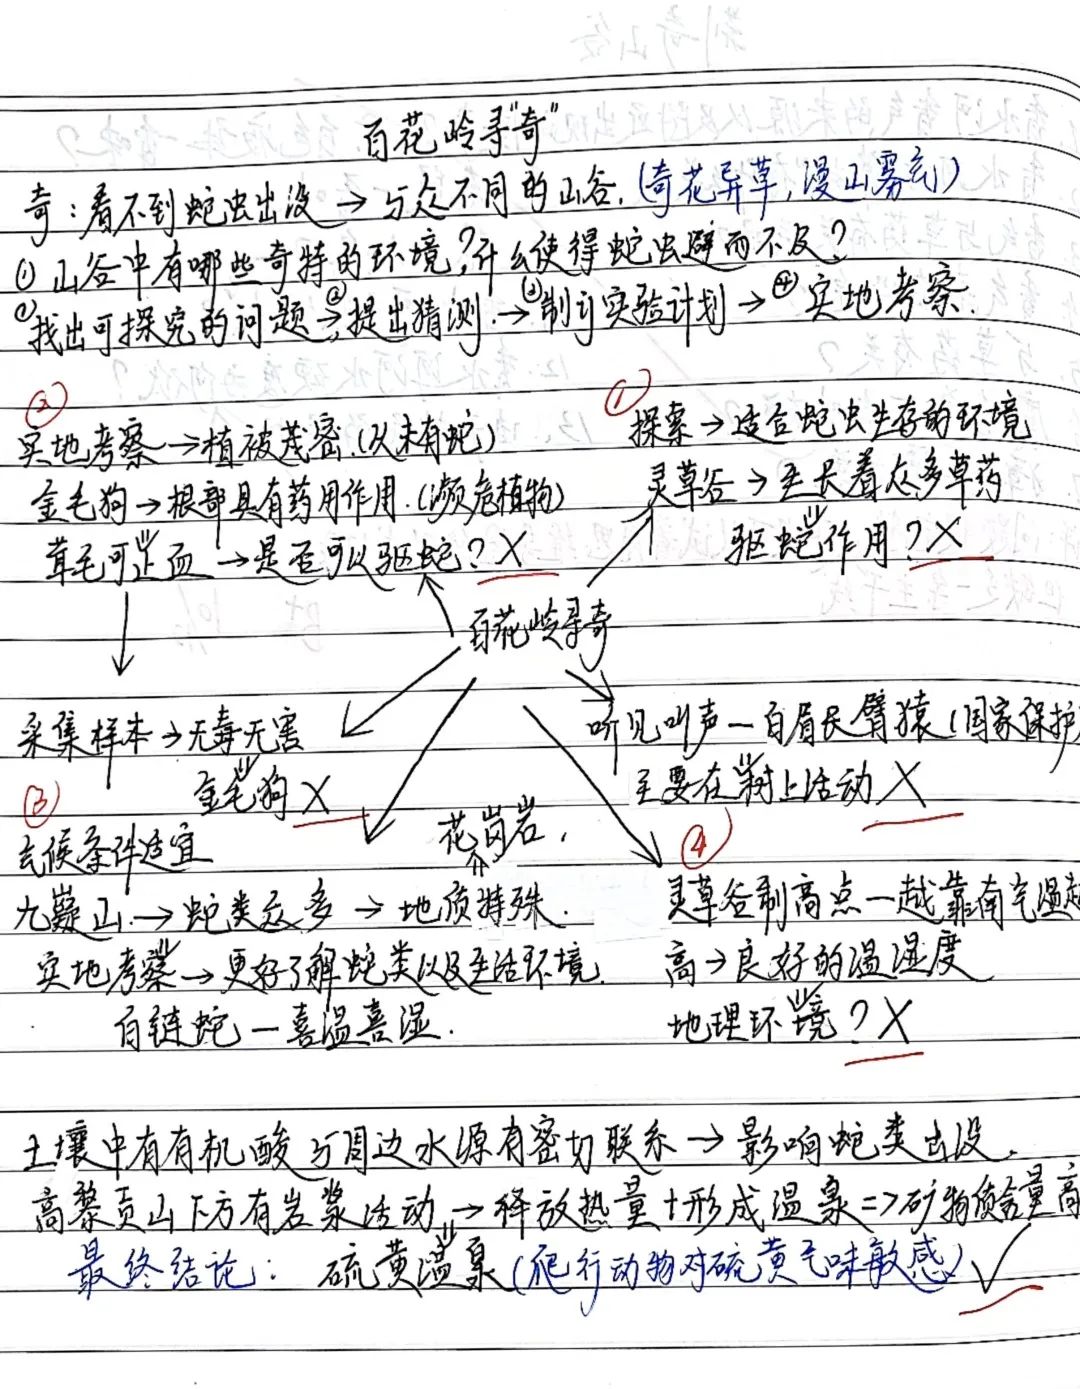 百花岭寻"奇"
奇:看不到蛇虫出没→与众不同的山谷.(奇花异草,漫山雾玄)
① 山谷中有哪些奇特的环境?什么使得蛇虫避而不及?
①找出可探究的问题→②提出猜测.→③制订实验计划→④实地考察.
②
实地考察→植被茂密.(从未有蛇)
金毛狗→根部具有药用作用.(濒危植物)
茸毛可止血→是否可以驱蛇?X
①
探索→适合蛇虫生存的环境
灵草谷→生长着众多草药
驱蛇作用?X
百花岭寻奇
采集样本→无毒无害
金毛狗X
听见叫声—白眉长臂猿(国家保护
主要在树上活动X
③
气候条件适宜
花岗岩.
九嶷山.→蛇类众多→地质特殊.
实地考察→更好了解蛇类以及生活环境.
白链蛇—喜温喜湿.
④
灵草谷制高点—越靠南气温越
高→良好的温湿度
地理环境?X
土壤中有有机酸与周边水源有密切联系→影响蛇类出没.
高黎贡山下方有岩浆活动→释放热量+形成温泉=>矿物质含量高
最终结论: 硫黄温泉(爬行动物对硫黄气味敏感)✓